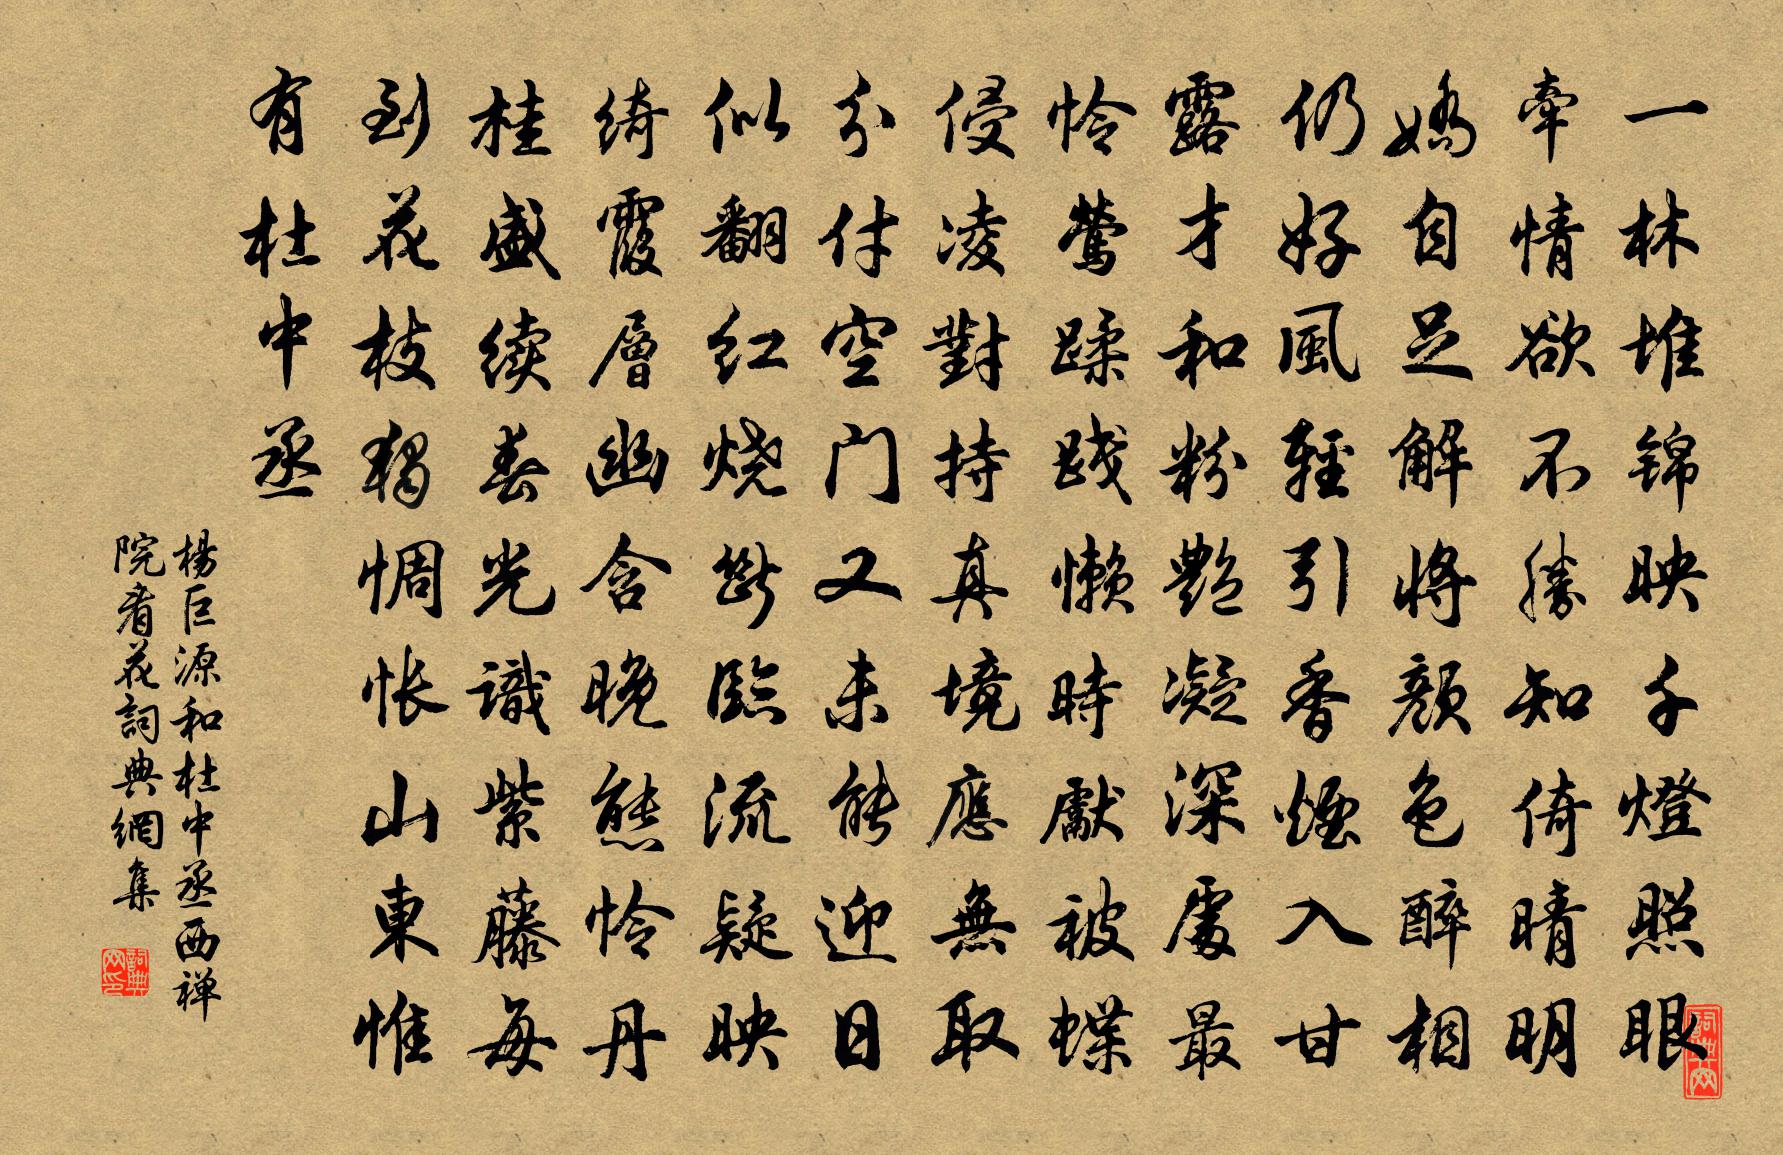 一林堆锦映千燈照眼
牵情欲不勝知倚晴明
嬌自足解將顔色醉相
仍好風輕引香煙入甘
露才和粉艷凝深處最
怜鶯蹂踐懒時獻被蝶
侵凌對持真境應無取
分付空门又未能迎日
似翻红烧斷臨流疑映
绮霞層幽含晚態怜丹
桂盛续春光識紫藤每
到花枝獨惆怅山東惟
有杜中丞
楊巨源和杜中丞西禅
院看花詞典網集
詞典网
詞典网印